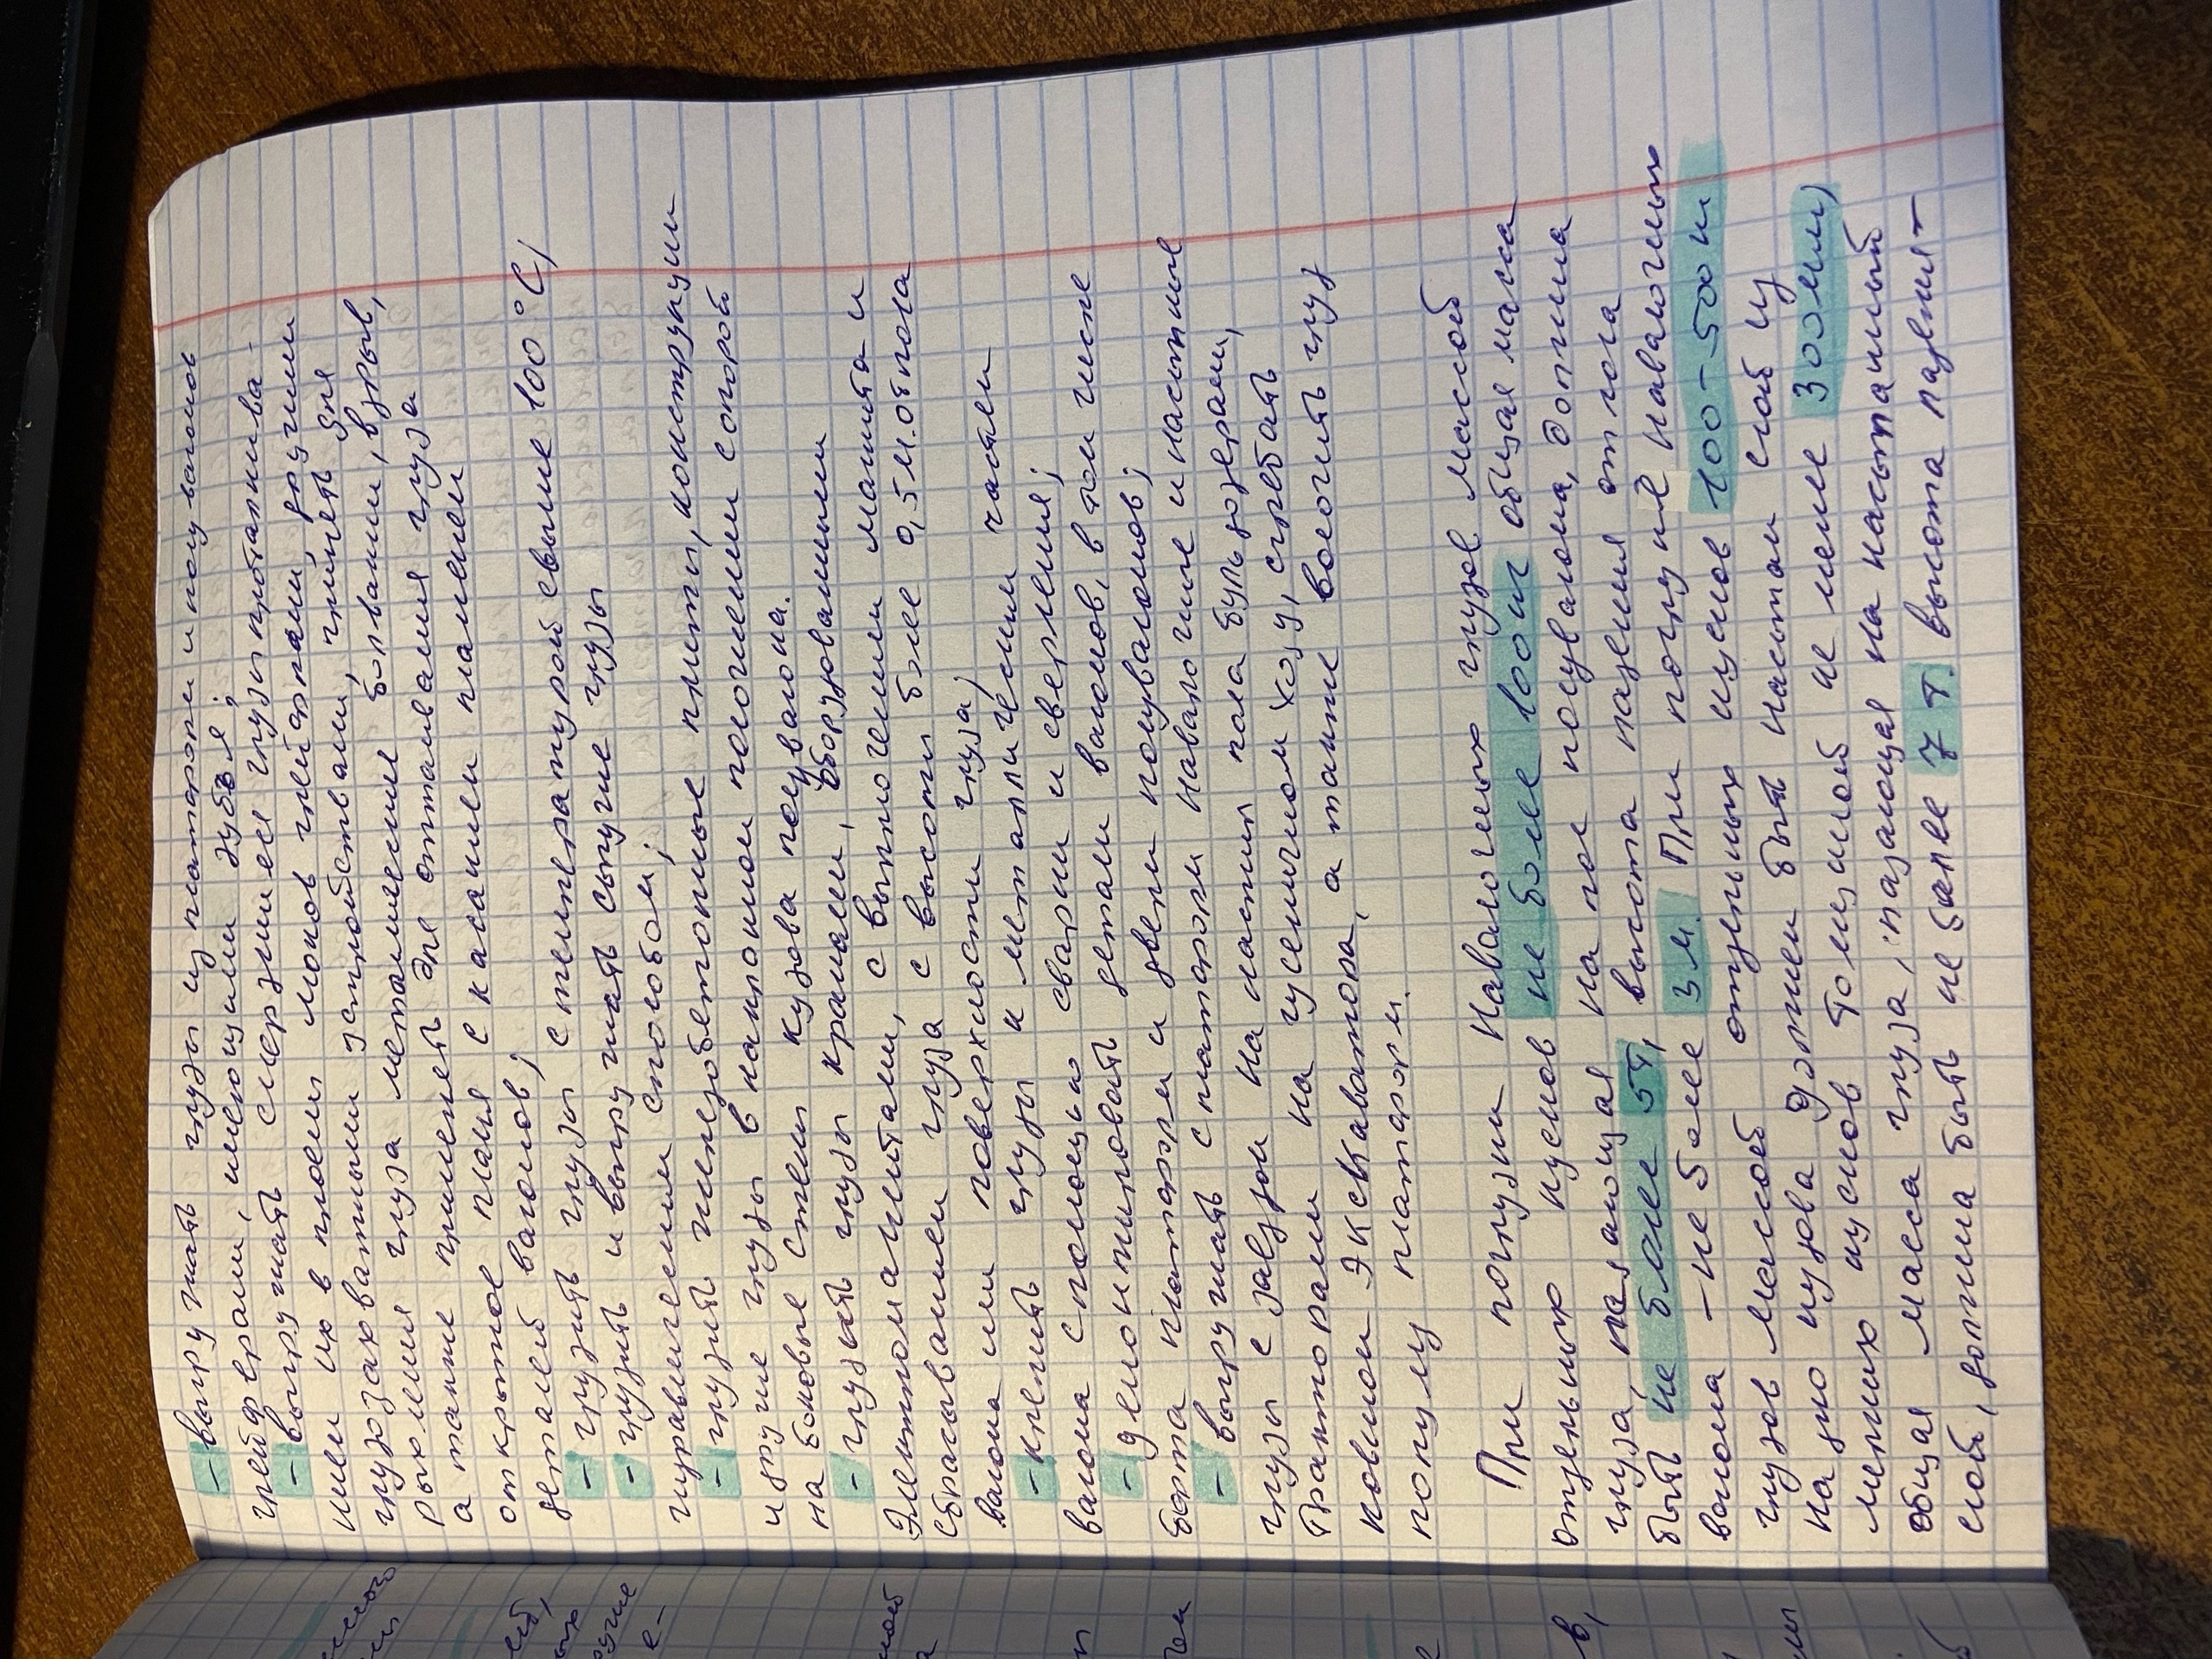 - выгружать грузы из платформ и полувагонов
грейферами, имеющими зубья;
- выгружать смерзшиеся грузы проталкива-
нием их в проем люков грейферами, другими
грузозахватными устройствами, применять для
рыхления груза металлические болванки, взрыв,
а также применять для оттаивания груза
открытое пламя с касанием пламенем
деталей вагонов;
- грузить грузы с температурой свыше 100 °C;
- грузить и выгружать сыпучие грузы
гидравлическим способом;
- грузить железобетонные плиты, конструкции
и другие грузы в наклонном положении с опорой
на боковые стены кузова полувагона.
- грузить грузы кранами, оборудованными
электромагнитами, с выключением магнита и
сбрасыванием груза с высоты более 0,5 м. от пола
вагона или поверхности груза;
- крепить грузы к металлическим частям
вагона с помощью сварки и сверления;
- демонтировать детали вагонов, в том числе
борта платформ и двери полувагонов;
- выгружать с платформ навалочные и насыпные
грузы с заездом на настил пола бульдозерами,
тракторами на гусеничном ходу, сгребать
ковшом экскаватора, а также волочить груз
по полу платформ.
При погрузки навалочных грузов массой
отдельных кусков не более 100 кг общая масса
груза, падающая на пол полувагона, должна
быть не более 5т, высота падения от пола
вагона - не более 3 м. При погрузке навалочных
грузов массой отдельных кусков 100-500 кг
на дно кузова должен быть насыпан слой из
мелких кусков толщиной не менее 300мм,
общая масса груза, падающая на насыпанный
слой, должна быть не более 7 т. высота падения-